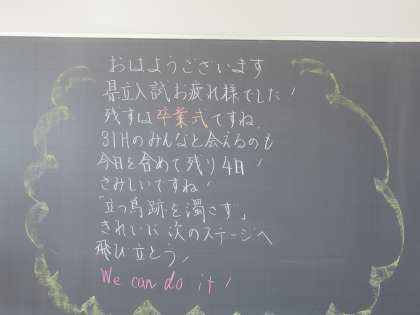 おはようございます
県立入試お疲れ様でした!
残すは卒業式ですね
31Hのみんなと会えるのも
今日を含めて残り4日!
さみしいですね!
「立つ鳥跡を濁さず」
きれいに次のステージへ
飛び立とう!
We can do it!